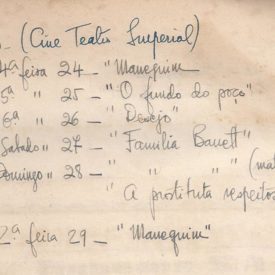 (Cine Teatro Imperial)
4ª feira 24 - "Manequim
5ª " 25 - "O fundo do poço"
6ª " 26 - "Desejo"
Sabado " 27 - "Familia Barrett"
Domingo " 28 - " " (mat
"A prostituta respeitos
2ª feira 29 - "Manequim"